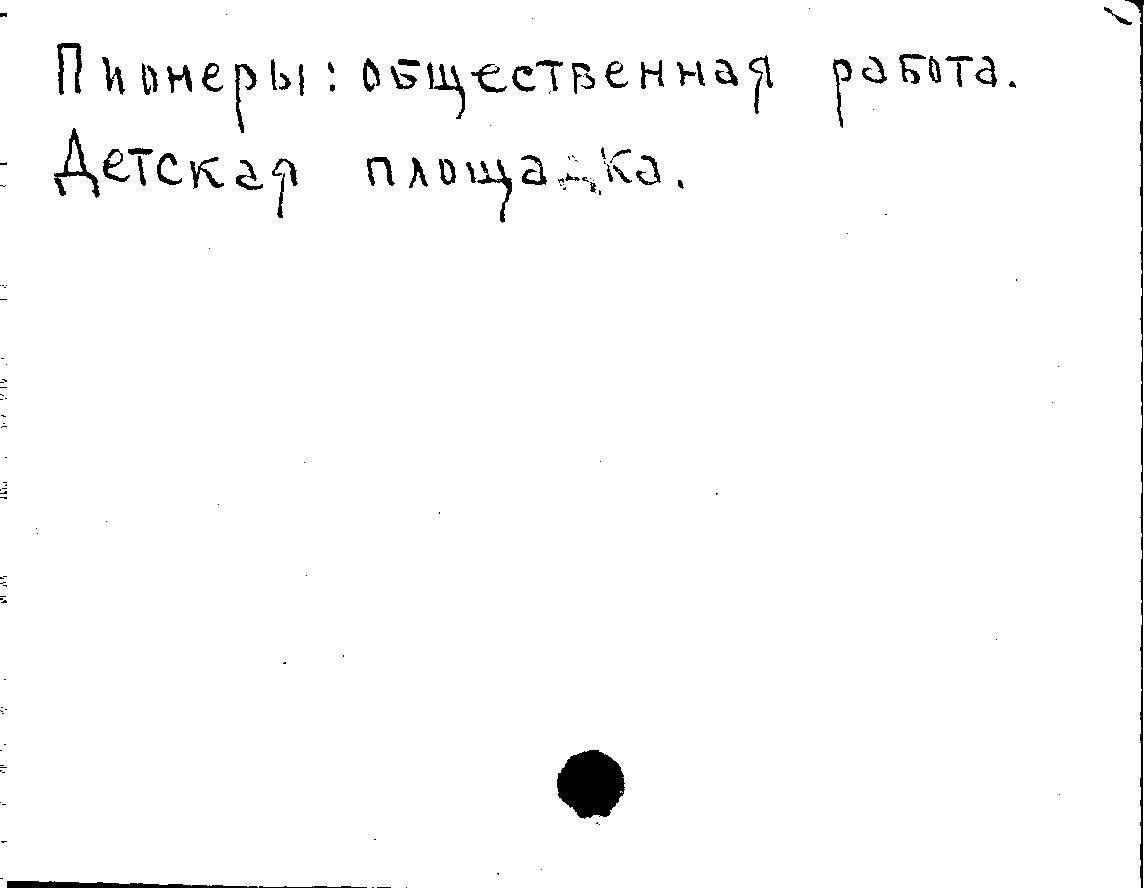 Пионеры: общественная работа.
Детская площадка.